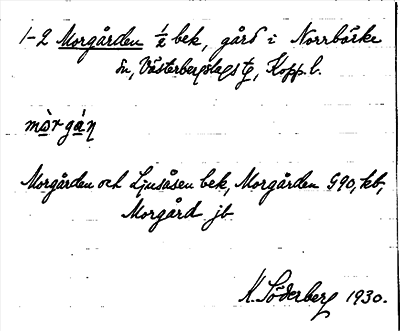 1-2 Morgården 1/2 bek, gård i Norrbärke
sn, Västerbergslags tg, Kopp. l.
mòrgán
Morgården och Ljusåsen bek, Morgården G90, kb,
Morgård jb
K. Söderberg 1930.